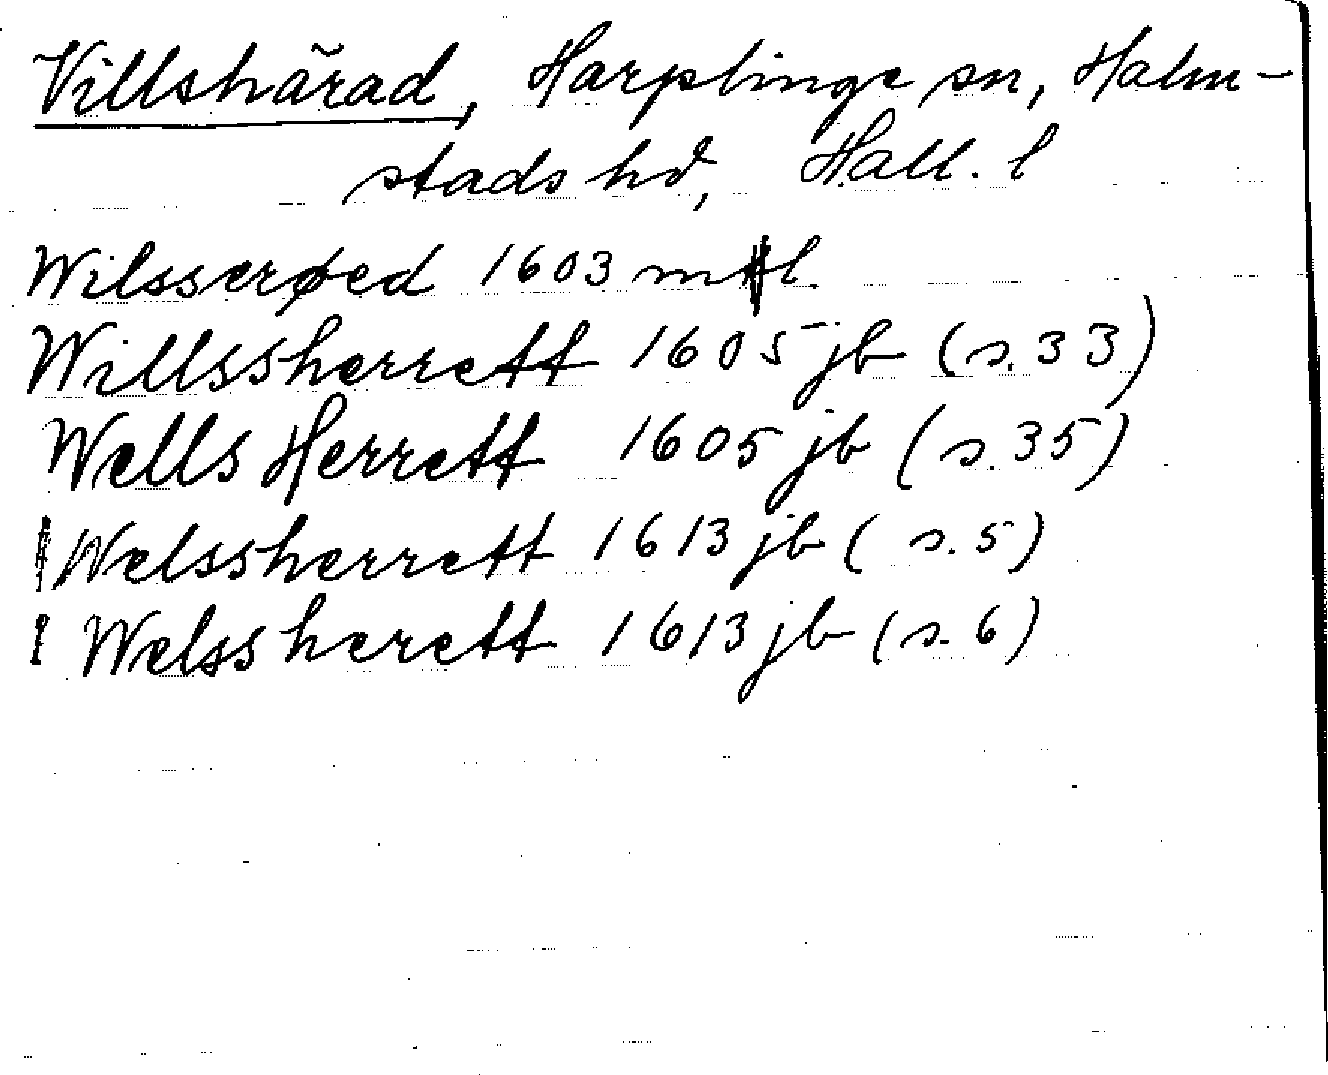 Villshärad, Harplinge sn, Halm-
stads hd, Hall. l
Wilsserøed 1603 ml.
Willssherrett 1605 jb (s. 33)
Wells Herrett 1605 jb (s. 35)
Welssherrett 1613 jb (s. 5)
Welssherett 1613 jb (s. 6)